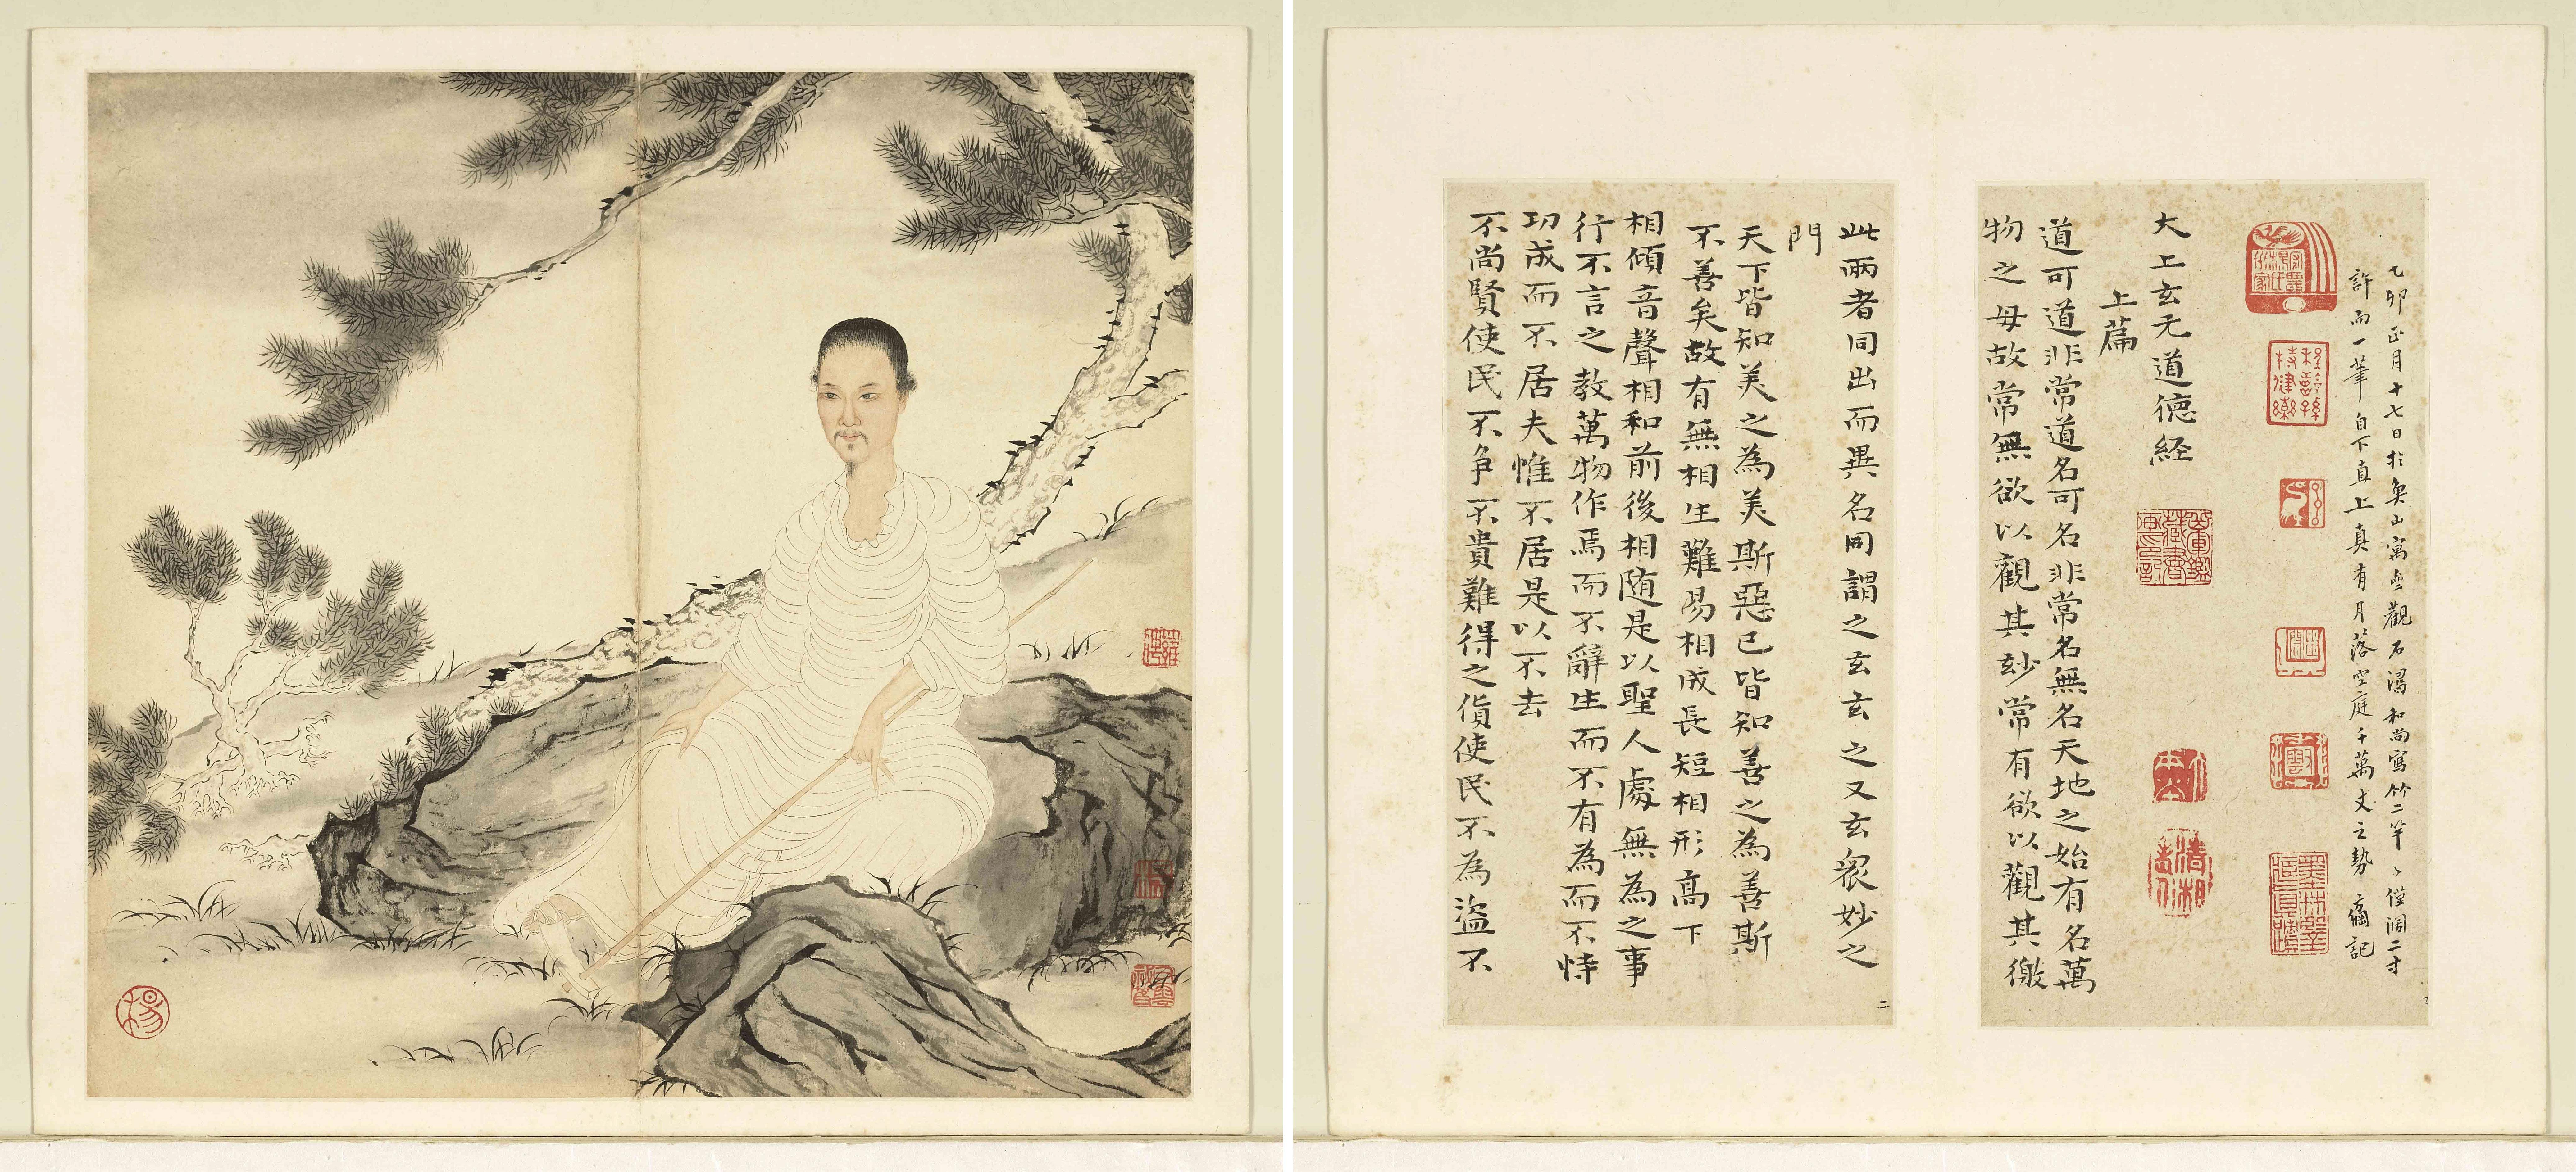 乙卯正月十七日於奐山寓壑觀石濤和尚寫竹二竿〻僅濶二寸
許而一筆自下直上真有月落空庭千萬丈之勢 記
大上玄元道德経
上篇
道可道非常道名可名非常名無名天地之始有名萬
物之母故常無欲以觀其玅常有欲以觀其徼
此兩者同出而異名同謂之玄玄之又玄衆妙之
門
天下皆知美之為美斯惡已皆知善之為善斯
不善矣故有無相生難易相成長短相形高下
相傾音聲相和前後相随是以聖人處無為之事
行不言之教萬物作焉而不辭生而不有為而不恃
功成而不居夫惟不居是以不去
不尚賢使民不爭不貴難得之貨使民不為盜不
二
楊